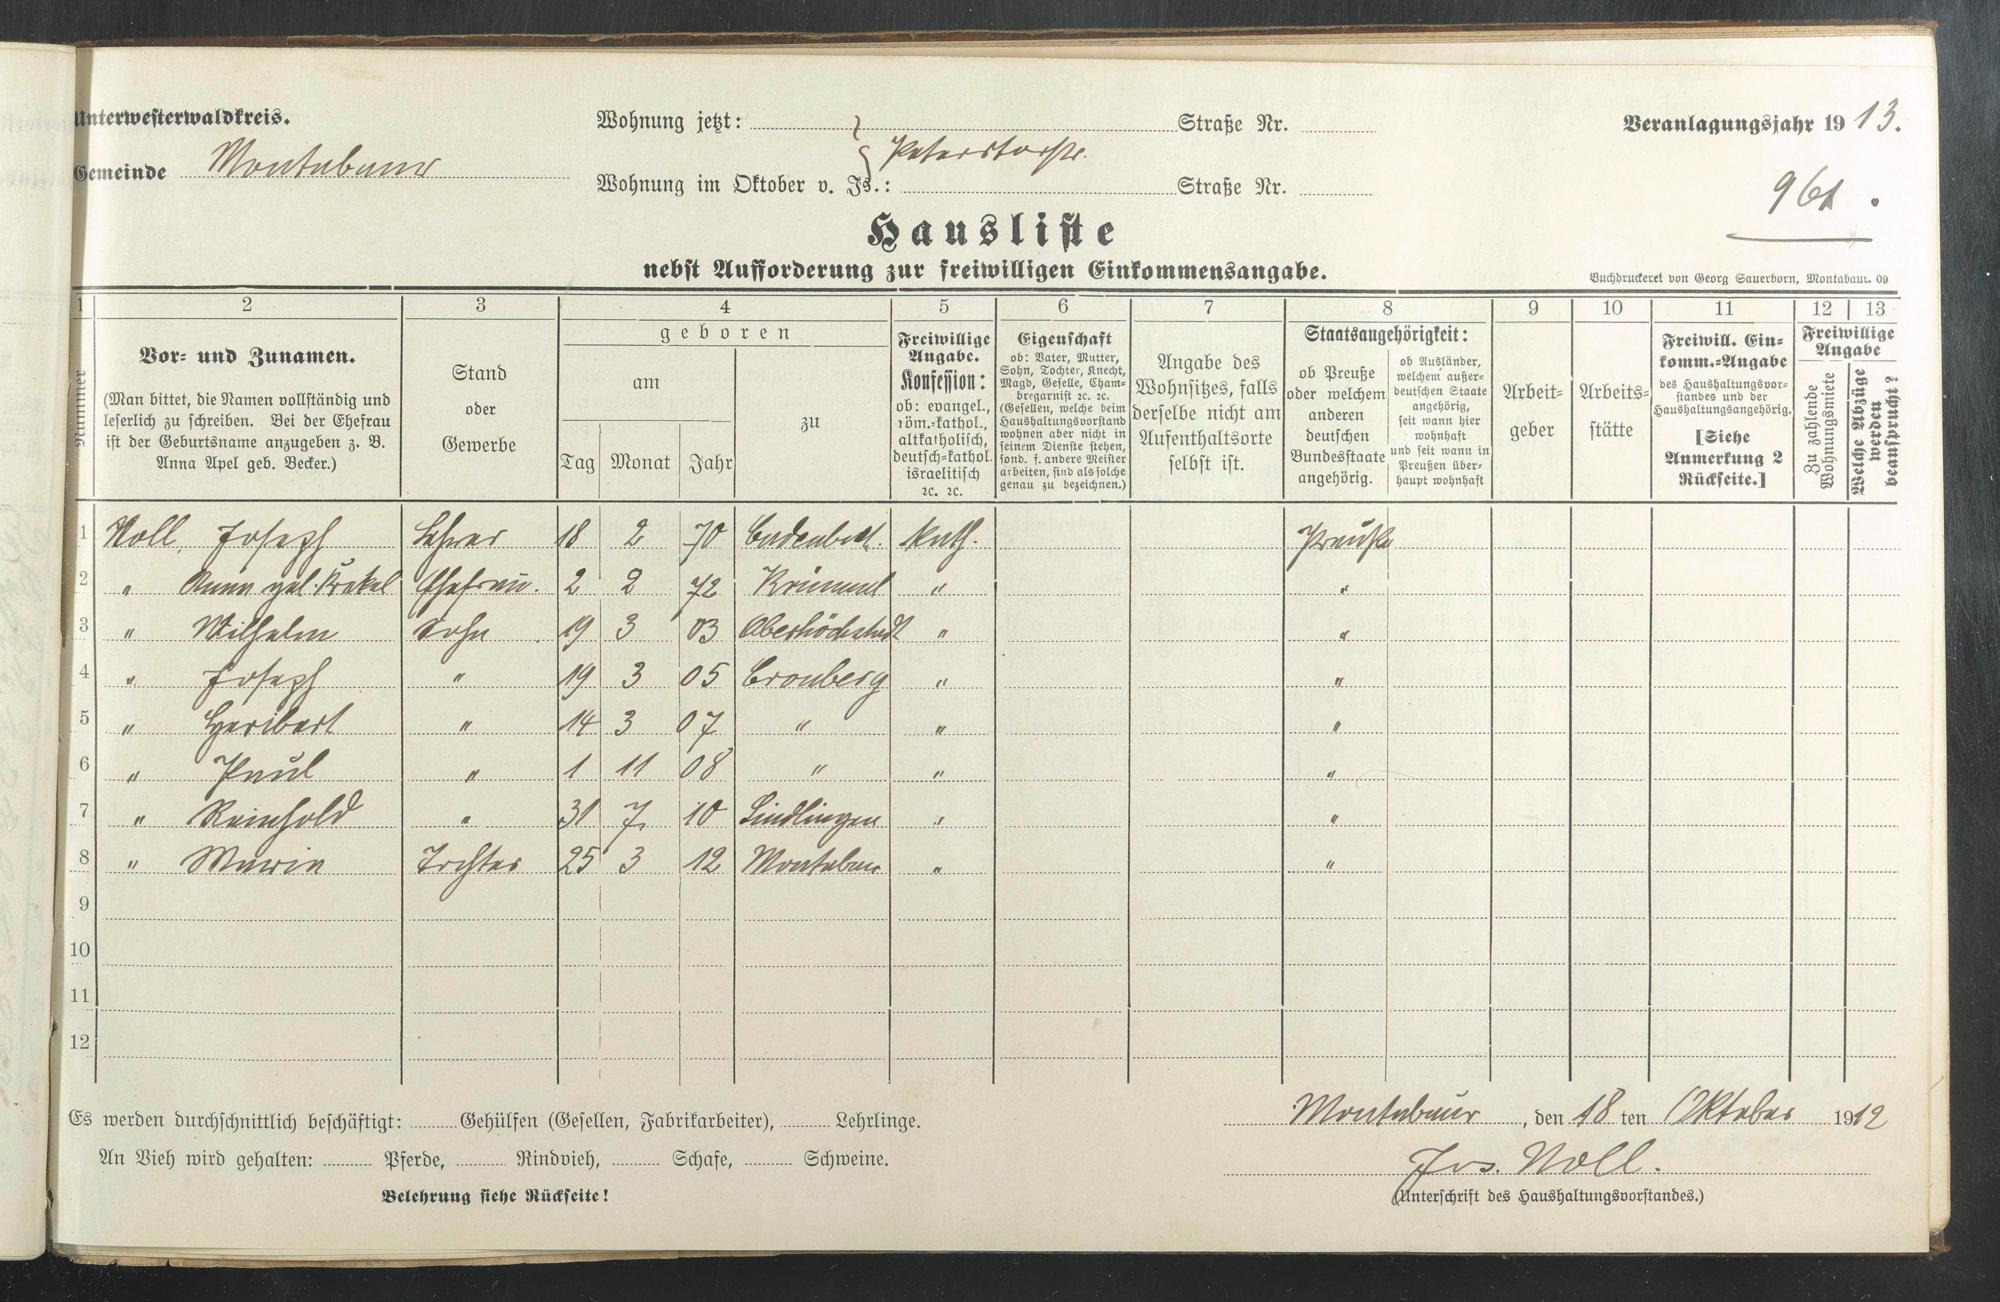 Unterwesterwaldkreis.
Gemeinde Montabaur
Wohnung jetzt: Straße Nr.
Peterstorstr.
Wohnung im Oktober v. Js.: Straße Nr.
Veranlagungsjahr 1913.
961.
Hausliste
nebst Aufforderung zur freiwilligen Einkommensangabe.
Buchdruckerei von Georg Sauerborn, Montabaur. 09
1 2 3 4 5 6 7 8 9 10 11 12 13
Nummer
Vor- und Zunamen.
(Man bittet, die Namen vollständig und
leserlich zu schreiben. Bei der Ehefrau
ist der Geburtsname anzugeben z. B.
Anna Apel geb. Becker.)
Stand
oder
Gewerbe
geboren
am
Tag Monat Jahr
zu
Freiwillige
Angabe.
Konfession:
ob: evangel.,
röm.-kathol.,
altkatholisch,
deutsch-kathol.
israelitisch
ꝛc. ꝛc.
Eigenschaft
ob: Vater, Mutter,
Sohn, Tochter, Knecht,
Magd, Geselle, Cham-
bregarnist ꝛc. ꝛc.
(Gesellen, welche beim
Haushaltungsvorstand
wohnen aber nicht in
seinem Dienste stehen,
sond. f. andere Meister
arbeiten, sind als solche
genau zu bezeichnen.)
Angabe des
Wohnsitzes, falls
derselbe nicht am
Aufenthaltsorte
selbst ist.
Staatsangehörigkeit:
ob Preuße
oder welchem
anderen
deutschen
Bundesstaate
angehörig.
ob Ausländer,
welchem außer-
deutschen Staate
angehörig,
seit wann hier
wohnhaft
und seit wann in
Preußen über-
haupt wohnhaft
Arbeit-
geber
Arbeits-
stätte
Freiwill. Ein-
komm.-Angabe
des Haushaltungsvor-
standes und der
Haushaltungsangehörig.
[Siehe
Anmerkung 2
Rückseite.]
Freiwillige
Angabe
Zu zahlende
Wohnungsmiete
Welche Abzüge
werden
beansprucht?
1 Noll, Joseph Lehrer 18 2 70 Kath. Preuße
2 " Anna geb. Krekel Ehefrau. 2 2 72 Krümmel " "
3 " Wilhelm Sohn 19 3 03 Oberhöchstadt " "
4 " Joseph " 19 3 05 Cronberg " "
5 " Heribert " 14 3 07 " " "
6 " Paul " 1 11 08 " " "
7 " Reinhold " 31 7. 10 Sindlingen " "
8 " Maria Tochter 25 3 12 Montabaur " "
9
10
11
12
Es werden durchschnittlich beschäftigt: Gehülfen (Gesellen, Fabrikarbeiter), Lehrlinge.
An Vieh wird gehalten: Pferde, Rindvieh, Schafe, Schweine.
Belehrung siehe Rückseite!
Montabaur, den 18 ten Oktober 1912
Jos. Noll.
(Unterschrift des Haushaltungsvorstandes.)